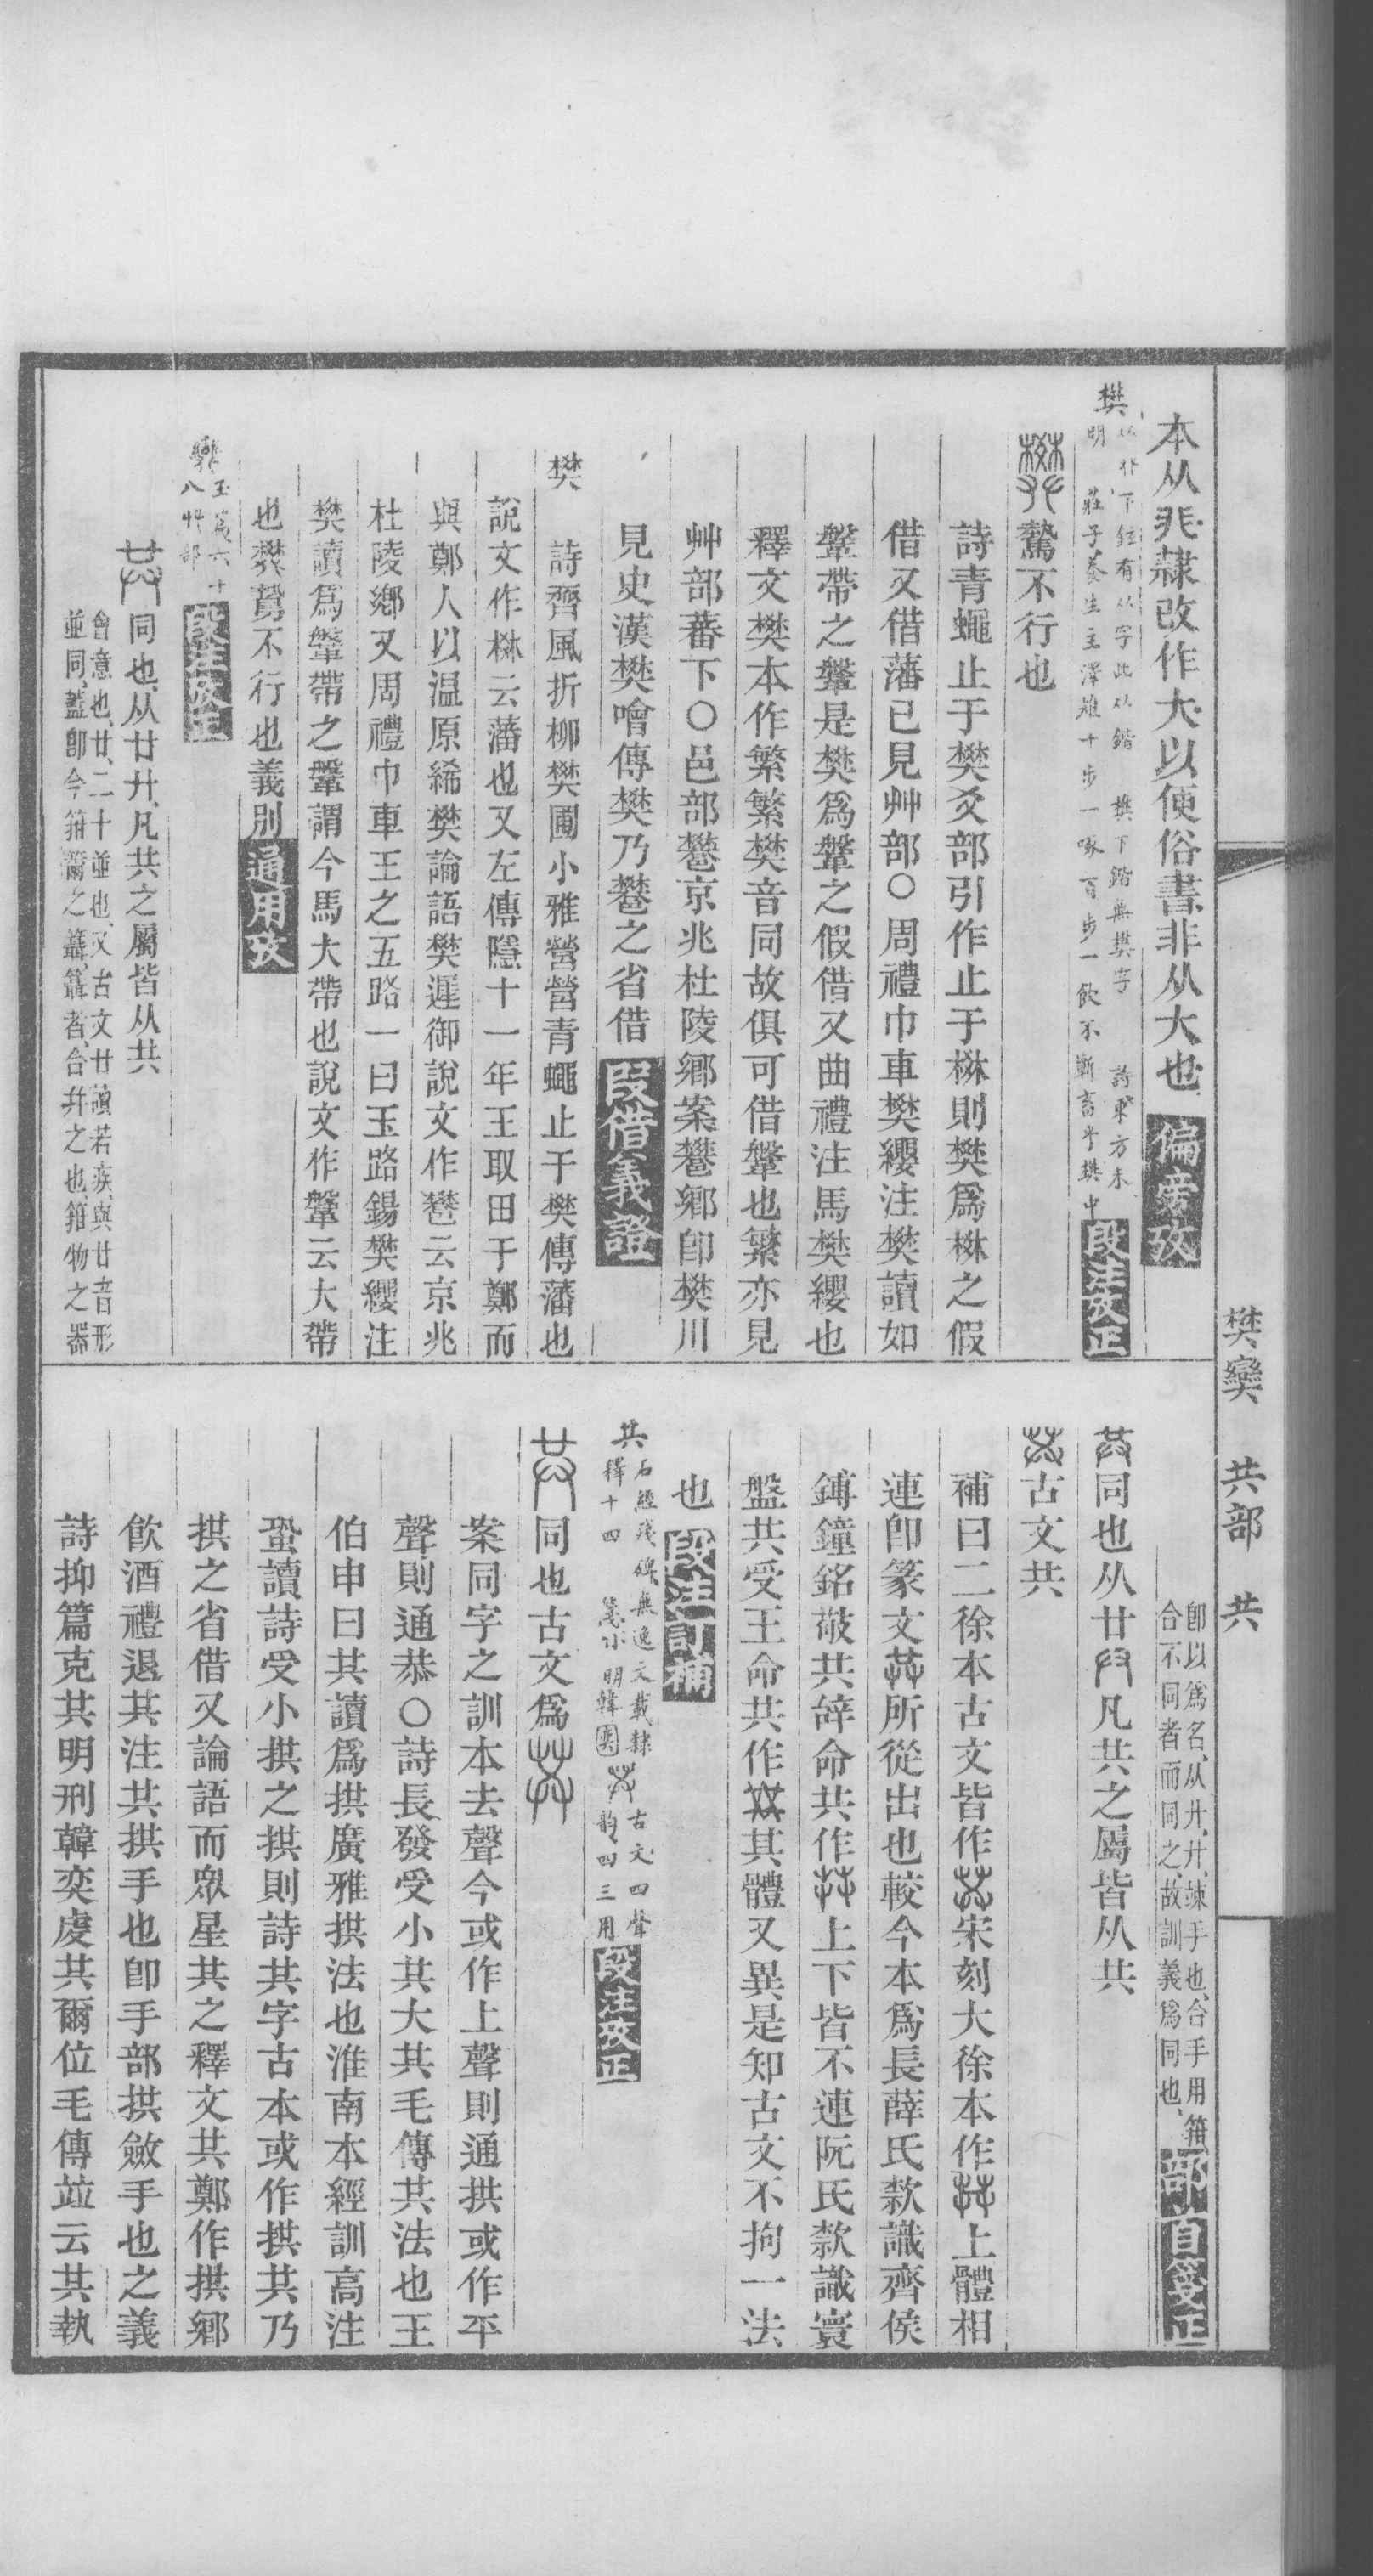 本从𠬜隸改作大以便俗書非从大也 偏旁攷
樊 明 莊子養生主澤雉十步一啄百步一飲不蘄畜乎樊中 段注攷正
鷙不行也
詩青蠅止于樊爻部引作止于棥則樊爲棥之假
借又借藩已見艸部〇周禮巾車樊纓注樊讀如
鞶帶之鞶是樊爲鞶之假借又曲禮注馬樊纓也
釋文樊本作繁繁樊音同故俱可借鞶也繁亦見
艸部蕃下〇邑部䣊京兆杜陵鄉案䣊鄉卽樊川
見史漢樊噲傳樊乃䣊之省借 叚借義證
樊 詩齊風折柳樊圃小雅營營青蠅止于樊傳藩也
說文作棥云藩也又左傳隱十一年王取田于鄭而
與鄭人以温原絺樊論語樊遲御說文作䣊云京兆
杜陵鄉又周禮巾車王之五路一曰玉路錫樊纓注
樊讀爲鞶帶之鞶謂今馬大帶也說文作鞶云大帶
也樊鷙不行也義別 通用攷
玉篇六十八𠬜部 段注攷正
同也从廿廾凡共之屬皆从共
會意也廿二十並也又古文廿讀若疾與廿音形
並同蓋卽今箝籋之籋籋者合幷之也箝物之器
樊𤔔 共部 共
卽以爲名从廾廾竦手也合手用箝
合不同者而同之故訓義爲同也 部首箋正
同也从廿廾凡共之屬皆从共
古文共
補曰二徐本古文皆作 宋刻大徐本作 上體相
連卽篆文 所從出也較今本爲長薛氏款識齊侯
鎛鐘銘敬共辝命共作 上下皆不連阮氏款識寰
盤共受王命共作 其體又異是知古文不拘一法
也 段注訂補
共 石經殘碑無逸文載隸釋十四 古文四聲韵四三用 段注攷正
同也古文爲
案同字之訓本去聲今或作上聲則通拱或作平
聲則通恭〇詩長發受小共大共毛傳共法也王
伯申曰共讀爲拱廣雅拱法也淮南本經訓高注
蛩讀詩受小拱之拱則詩共字古本或作拱共乃
拱之省借又論語而眾星共之釋文共鄭作拱鄉
飮酒禮退共注共拱手也卽手部拱斂手也之義
詩抑篇克共明刑韓奕虔共爾位毛傳竝云共執